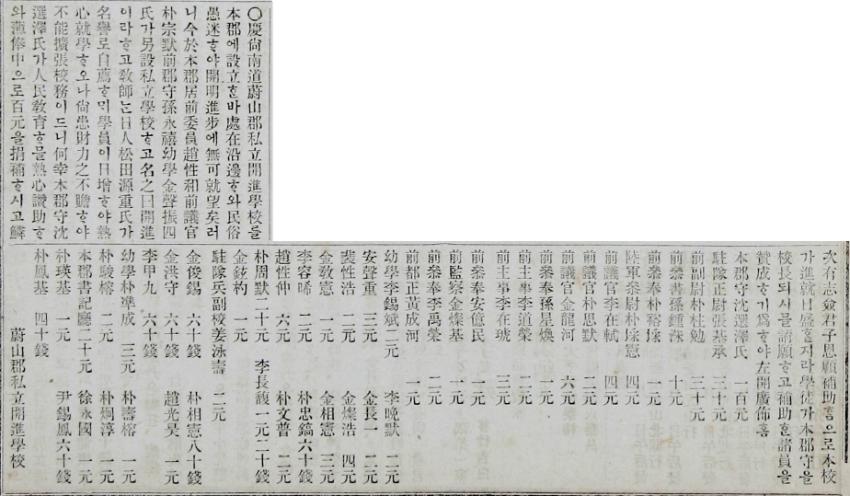 〇慶尙南道蔚山郡私立開進學校를
本郡에設立ᄒᆞᆫ바處在沿邊ᄒᆞ와民俗
愚迷ᄒᆞ야開明進步에無可就望矣러
니今於本郡居前委員趙性和前議官
朴宗默前郡守孫永禧幼學金聲振四
氏가另設私立學校ᄒᆞ고名之曰開進
이라ᄒᆞ고敎師ᄂᆞᆫ日人松田源重氏가
名譽로自薦ᄒᆞ믹學員이日增ᄒᆞ야熱
心就學ᄒᆞ오나尙患財力之不贍ᄒᆞ야
不能擴張校務이드니何幸本郡守沈
選澤氏가人民敎育ᄒᆞ믈熱心讚助ᄒᆞ
와薄俸中으로百元을捐補ᄒᆞ시고鱗
次有志僉君子思願補助ᄒᆞᆷ으로本校
가進就日盛ᄒᆞᆯ지라學徒가本郡守을
校長되시믈請願ᄒᆞ고補助ᄒᆞᆫ諸員을
贊成ᄒᆞ기爲ᄒᆞ야左開廣佈홈
本郡守沈選澤氏 一百元
駐隊正尉張基承 三十元
前副尉朴柱勉 三十元
前參書孫鍾洙 十元
前參奉朴裕 一元
陸軍參尉朴 憲 四元
前議官李在軾 四元
前議官朴思默 二元
前議官金龍河 六元
前參奉孫星煥 一元
前主事李道榮 二元
前主事李在琥 三元
前參奉安億民 一元
前監察金燦基 一元
前參奉李禹榮 二元
前都正黃成河 一元
幼學李錫斌 二元 李晩默 二元
安聲重 三元 金長一 二元
裵性浩 二元 金燦浩 四元
金敎憲 一元 金相憲 三元
李容晞 二元 朴忠鎬 六十錢
趙性仲 六元 朴文普 二元
朴周默 二十元 李長馥 一元二十錢
金鉉杓 一元
駐隊兵副校姜泳壽 二元
金俊錫 六十錢 朴相憲 八十錢
金洪守 六十錢 趙光昊 一元
李甲九 六十錢
幼學朴準成 三元 朴壽榕 一元
朴駿榕 二元 朴炯淳 一元
本郡書記廳 二十元 徐永國 一元
朴瑛基 一元 尹錫鳳 六十錢
朴鳳基 四十錢
蔚山郡私立開進學校